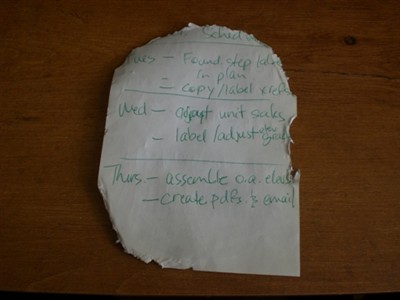 Sched
Tues – Found. step
in plan
= copy/label
Wed – adjust unit scales
– label/adjust
Thurs – assemble o.a.
– create pdfs & email